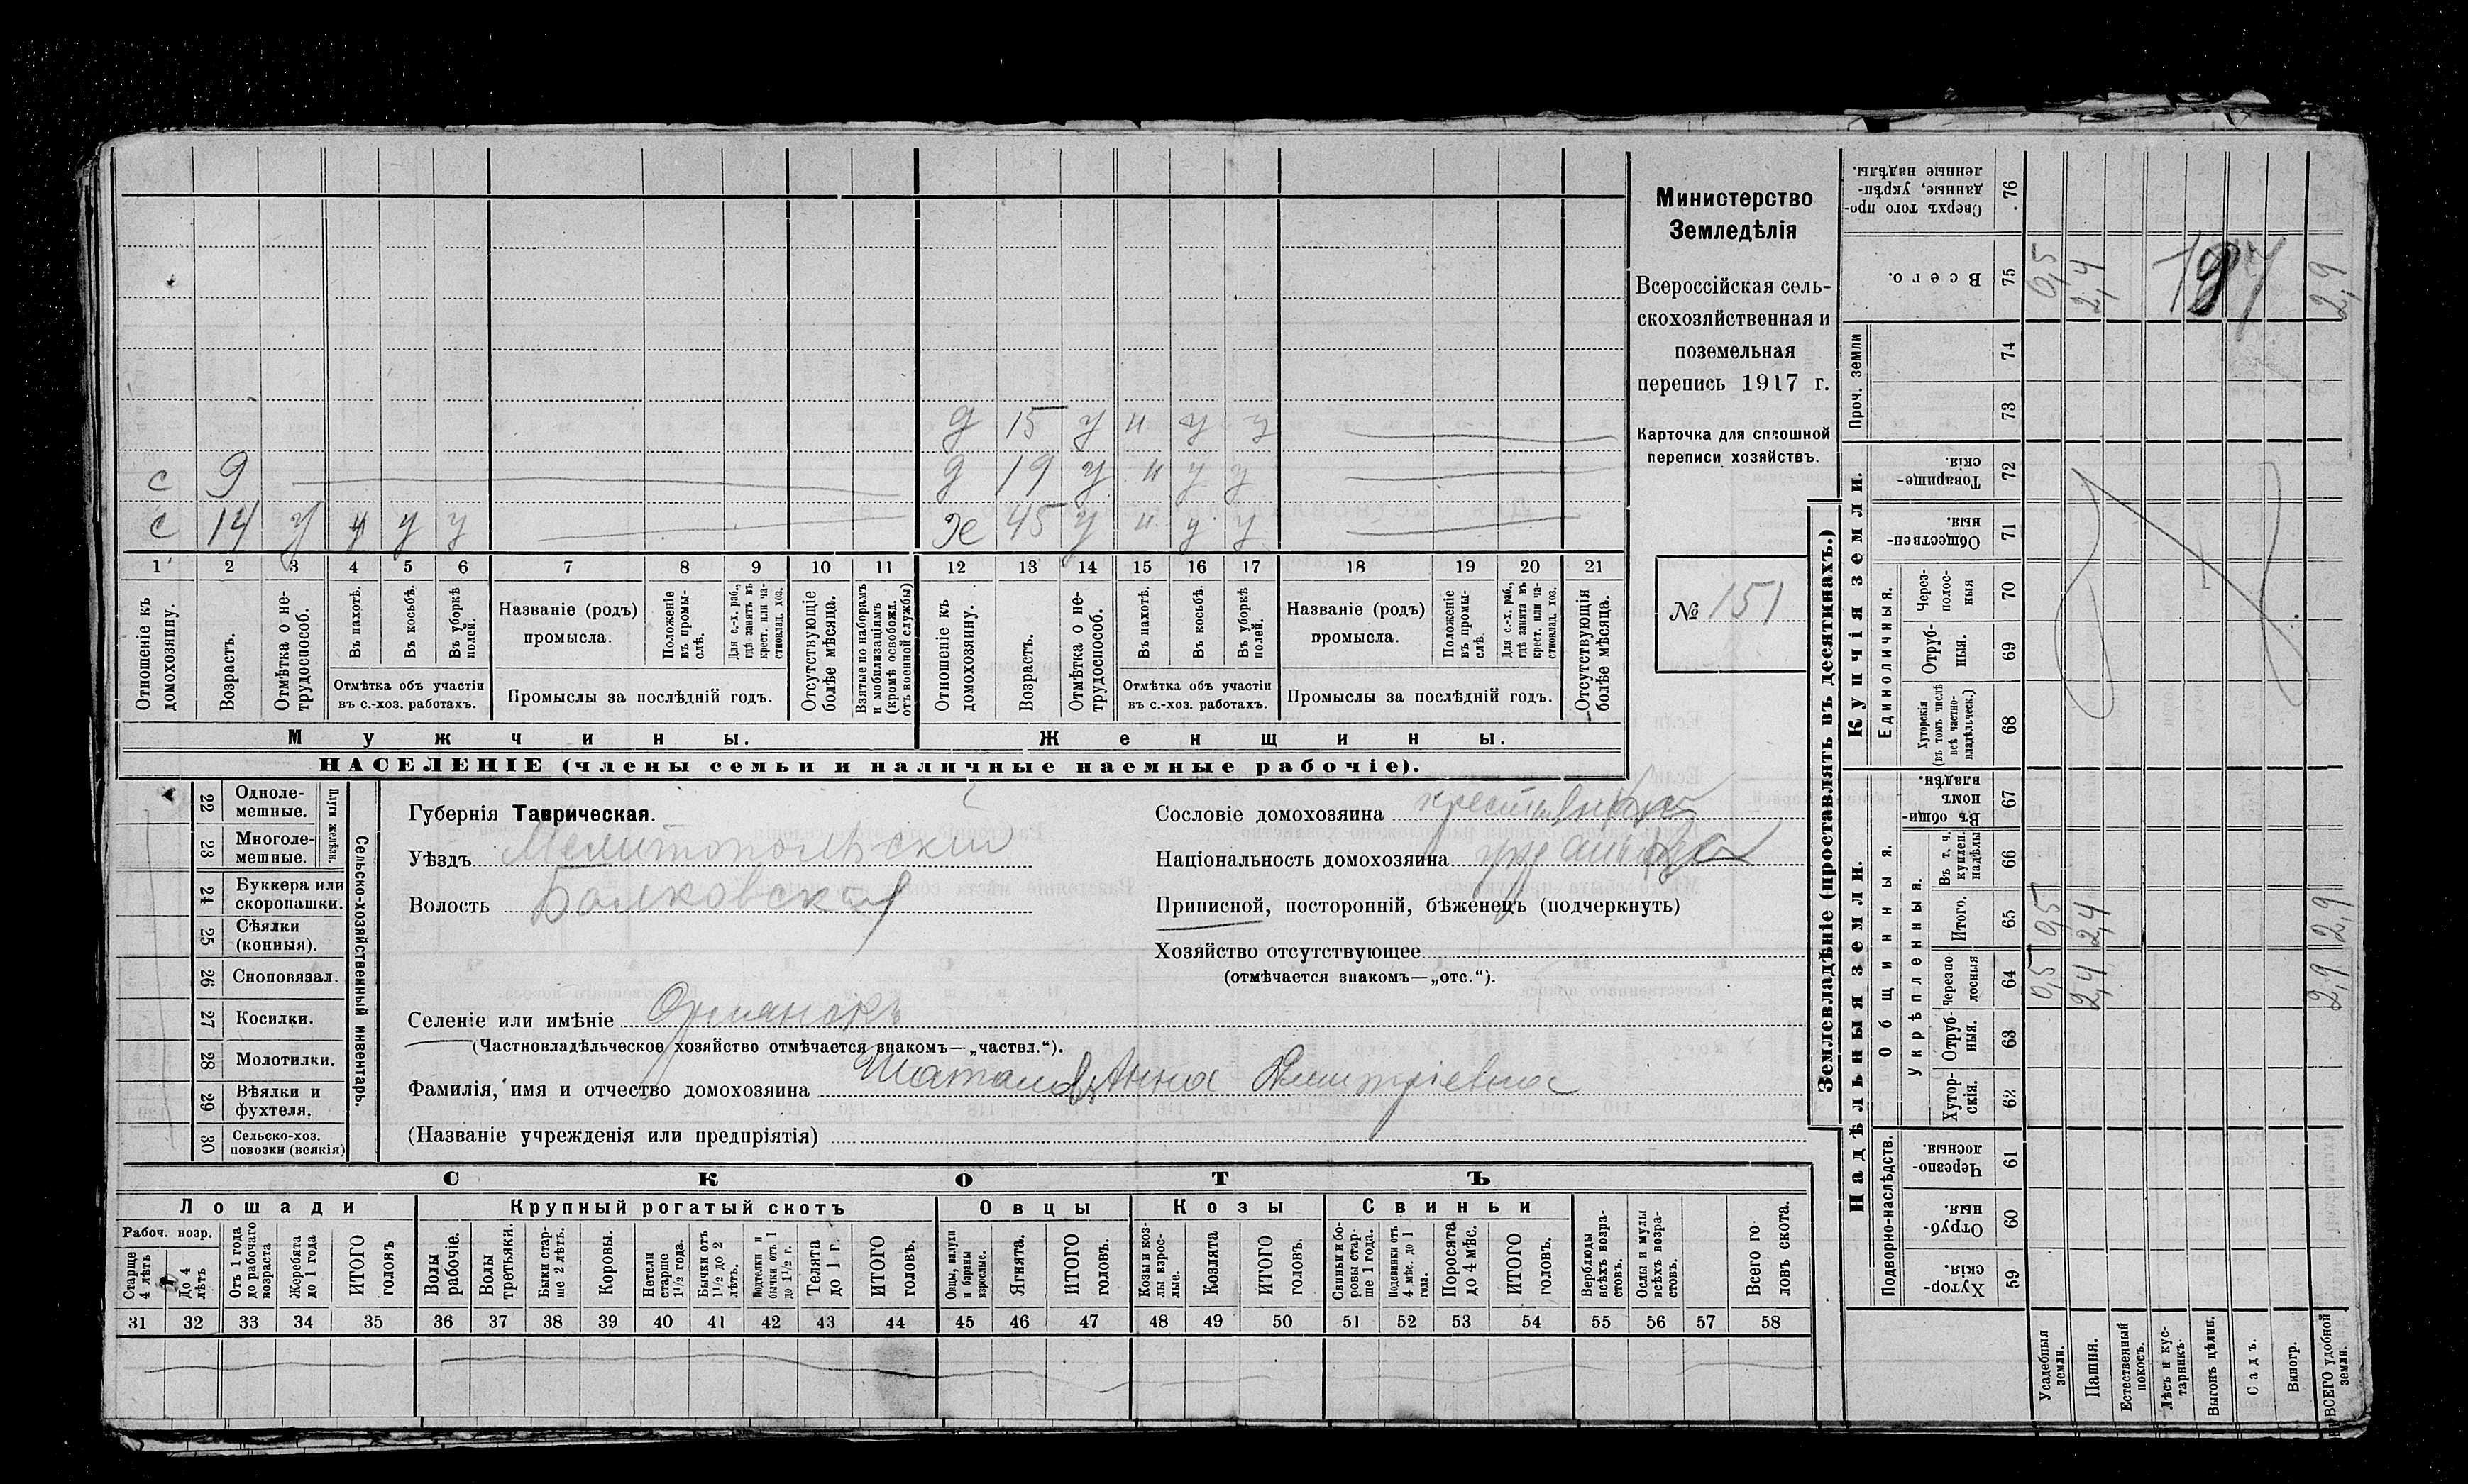 Министерство
Земледѣлія
Всероссійская сель-
скохозяйственная и
поземельная
перепись 1917 г.
Карточка для сплошной
переписи хозяйствъ.
№ 151
д 15 у н у у
с 9
д 19 у н у у
с 14 у н у у
ж 45 у н у у
1 2 3 4 5 6 7 8 9 10 11 12 13 14 15 16 17 18 19 20 21
Отношеніе къ домохозяину.
Возрастъ.
Отмѣтка о не-трудоспособ.
Въ пахотѣ.
Въ косьбѣ.
Въ уборкѣ полей.
Отмѣтка объ участіи
въ с.-хоз. работахъ.
Названіе (родъ)
промысла.
Положеніе въ промы-слѣ.
Для с.-х. раб., гдѣ занятъ въ крест. или ча-стновлад. хоз.
Промыслы за послѣдній годъ.
Отсутствующіе болѣе мѣсяца.
Взятые по наборамъ и мобилизаціямъ (кромѣ освобожд. отъ военной службы)
Отношеніе къ домохозяину.
Возрастъ.
Отмѣтка о не-трудоспособ.
Въ пахотѣ.
Въ косьбѣ.
Въ уборкѣ полей.
Отмѣтка объ участіи
въ с.-хоз. работахъ.
Названіе (родъ)
промысла.
Положеніе въ промы-слѣ.
Для с.-х. раб., гдѣ занята въ крест. или ча-стновлад. хоз.
Промыслы за послѣдній годъ.
Отсутствующія болѣе мѣсяца.
Мужчины.
Женщины.
НАСЕЛЕНІЕ (члены семьи и наличные наемные рабочіе).
22 Одноле-мешные.
23 Многоле-мешные.
Плуги желѣзн.
24 Буккера или скоропашки.
25 Сѣялки (конныя).
26 Сноповязал.
27 Косилки.
28 Молотилки.
29 Вѣялки и фухтеля.
30 Сельско-хоз. повозки (всякія)
Сельско-хозяйственный инвентарь.
Губернія Таврическая.
Уѣздъ Мелитопольскій
Волость
Сословіе домохозяина
Національность домохозяина
Приписной, посторонній, бѣженецъ (подчеркнуть)
Хозяйство отсутствующее
(отмѣчается знакомъ—„отс.“).
Селеніе или имѣніе
(Частновладѣльческое хозяйство отмѣчается знакомъ—„частвл.“).
Фамилія, имя и отчество домохозяина Анна Дмитріевна
(Названіе учрежденія или предпріятія)
СКОТЪ
Лошади
Крупный рогатый скотъ
Овцы
Козы
Свиньи
Рабоч. возр.
Старше 4 лѣтъ
До 4 лѣтъ
Отъ 1 года до рабочаго возраста
Жеребята до 1 года
ИТОГО головъ
Волы рабочіе.
Волы третьяки.
Быки стар-ше 2 лѣтъ.
Коровы.
Нетели старше 1½ года.
Бычки отъ 1½ до 2 лѣтъ.
Подтелки и бычки отъ 1 до 1½ г.
Телята до 1 г.
ИТОГО головъ.
Овцы, валухи и бараны взрослые.
Ягнята.
ИТОГО головъ.
Козы и коз-лы взрос-лые.
Козлята
ИТОГО головъ.
Свиньи и бо-ровы стар-ше 1 года.
Подсвинки отъ 4 мѣс. до 1 года.
Поросята до 4 мѣс.
ИТОГО головъ.
Верблюды всѣхъ возра-стовъ.
Ослы и мулы всѣхъ возра-стовъ.
Всего го-ловъ скота.
31 32 33 34 35 36 37 38 39 40 41 42 43 44 45 46 47 48 49 50 51 52 53 54 55 56 57 58
Землевладѣніе (проставлять въ десятинахъ.)
Надѣльныя земли.
Подворно-наслѣдств.
Хутор-скія. 59
Отруб-ныя. 60
Черезпо-лосныя. 61
Общинныя.
Укрѣпленныя.
Хутор-скія. 62
Отруб-ныя. 63
Черезпо-лосныя 64 0,5 2,4 2,9
Итого. 65 0,5 2,4 2,9
Въ т. ч. куплен. надѣлы 66
Въ общи-номъ владѣн. 67
Купчія земли.
Единоличныя.
Хуторскія (въ томъ числѣ всѣ частно-владѣльческ.) 68
Отруб-ныя. 69
Через-полос-ныя 70
Обществен-ныя. 71
Товарище-скія. 72
Проч. земли
73
74
Всего. 75 0,5 2,4 2,9
Сверхъ того про-данные, укрѣп-ленные надѣлы. 76
Усадебныя земли.
Пашня.
Естественный покосъ.
Лѣсъ и кус-тарникъ.
Выгонъ цѣлин.
Садъ.
Виногр.
ВСЕГО удобной земли.